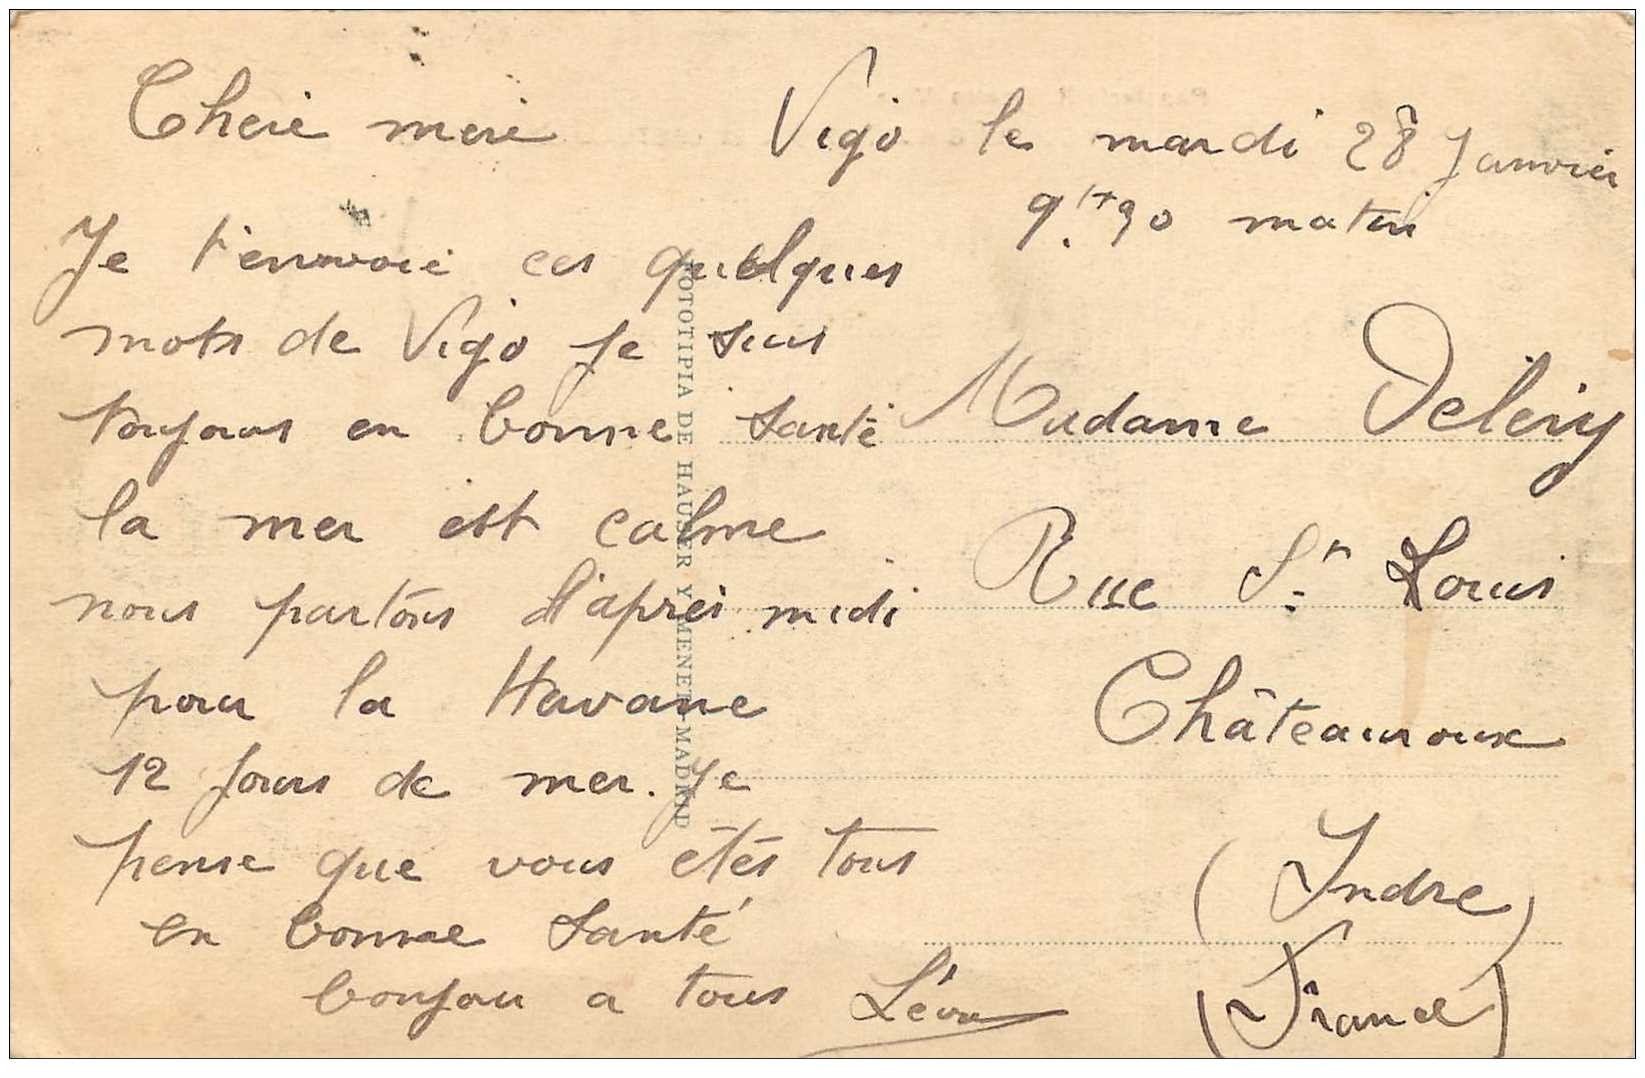 Cherie mere
Vigo le mardi 28 Janvier
9.H 30 matin
Je t'envoie ces quelques
mots de Vigo Je suis
toujours en bonne santé
la mer est calme
nous partons d'apres midi
pour la Havane
12 jours de mer. Je
pense que vous étés tous
en bonne santé
bonjour a tous Léon
FOTOTIPIA DE HAUSER Y MENET.-MADRID
Madame Deléry
Rue St Louis
Châteauroux
(Indre)
(France)